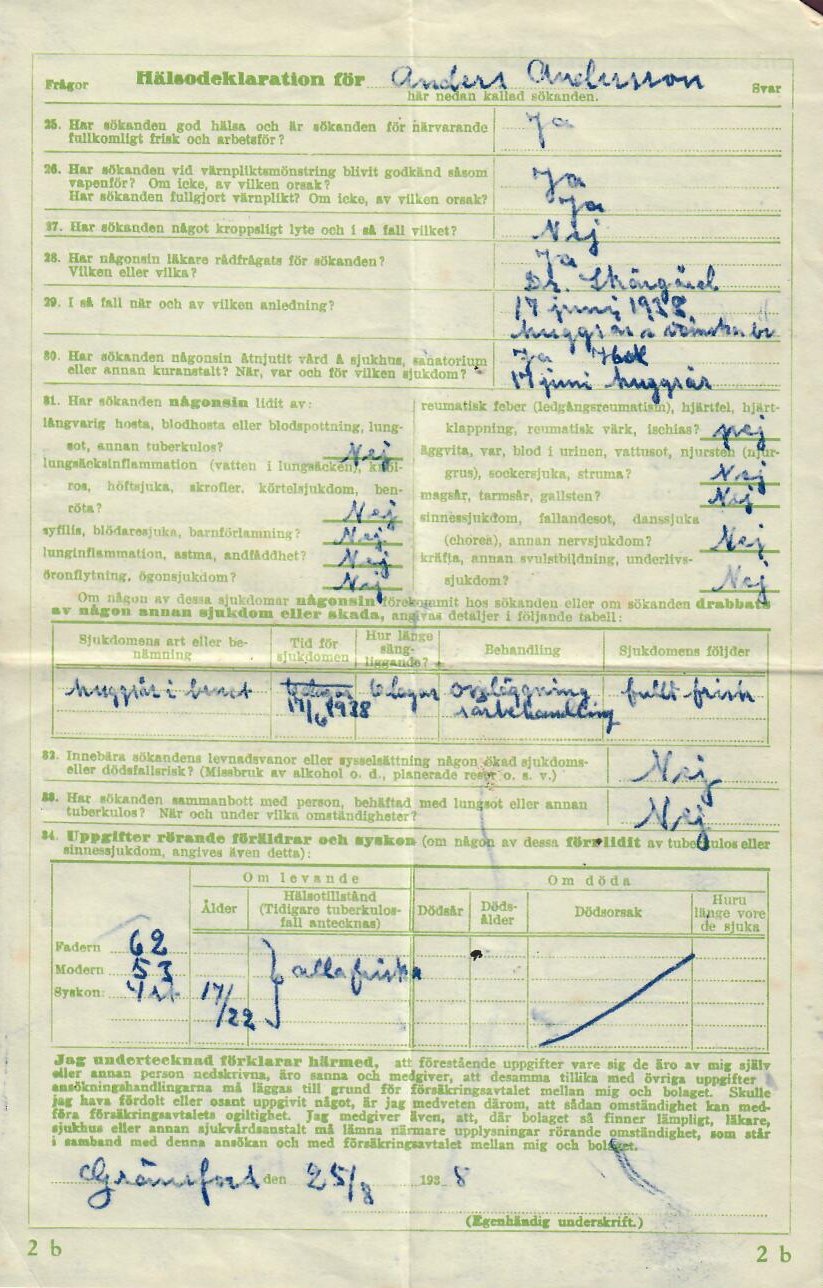 Frågor Hälsodeklaration för Anders Andersson Svar
här nedan kallad sökanden.
25. Har sökanden god hälsa och är sökanden för närvarande
fullkomligt frisk och arbetsför?
Ja
26. Har sökanden vid värnpliktsmönstring blivit godkänd såsom
vapenför? Om icke, av vilken orsak?
Ja
Har sökanden fullgjort värnplikt? Om icke, av vilken orsak?
Ja
27. Har sökanden något kroppsligt lyte och i så fall vilket?
Nej
28. Har någonsin läkare rådfrågats för sökanden?
Ja
Vilken eller vilka?
Dr. Skärgård
29. I så fall när och av vilken anledning?
17 juni 1938
huggsår i vänstra be
30. Har sökanden någonsin åtnjutit vård å sjukhus, sanatorium
eller annan kuranstalt? När, var och för vilken sjukdom?
Ja
17 juni huggsår
31. Har sökanden någonsin lidit av:
långvarig hosta, blodhosta eller blodspottning, lung-
sot, annan tuberkulos? Nej
lungsäcksinflammation (vatten i lungsäcken), knöl-
ros, höftsjuka, skrofler, körtelsjukdom, ben-
röta? Nej
syfilis, blödaresjuka, barnförlamning? Nej
lunginflammation, astma, andfåddhet? Nej
öronflytning, ögonsjukdom? Nej
reumatisk feber (ledgångsreumatism), hjärtfel, hjärt-
klappning, reumatisk värk, ischias? nej
äggvita, var, blod i urinen, vattusot, njursten (njur-
grus), sockersjuka, struma? Nej
magsår, tarmsår, gallsten? Nej
sinnessjukdom, fallandesot, danssjuka
(chorea), annan nervsjukdom? Nej
kräfta, annan svulstbildning, underlivs-
sjukdom? Nej
Om någon av dessa sjukdomar någonsin förekommit hos sökanden eller om sökanden drabbats
av någon annan sjukdom eller skada, angivas detaljer i följande tabell:
Sjukdomens art eller be-
nämning
Tid för
sjukdomen
Hur länge
säng-
liggande?
Behandling
Sjukdomens följder
huggsår i benet 6 dagar 6 dagar omläggning fullt frisk
17/6 1938 sårbehandling
32. Innebära sökandens levnadsvanor eller sysselsättning någon ökad sjukdoms-
eller dödsfallsrisk? (Missbruk av alkohol o. d., planerade resor o. s. v.)
Nej
33. Har sökanden sammanbott med person, behäftad med lungsot eller annan
tuberkulos? När och under vilka omständigheter?
Nej
34. Uppgifter rörande föräldrar och syskon (om någon av dessa förr lidit av tuberkulos eller
sinnessjukdom, angives även detta):
Om levande Om döda
Ålder
Hälsotillstånd
(Tidigare tuberkulos-
fall antecknas)
Dödsår
Döds-
ålder
Dödsorsak
Huru
länge vore
de sjuka
Fadern 62
Modern 53 alla friska
Syskon: 4 st 17/
/22
Jag undertecknad förklarar härmed, att förestående uppgifter vare sig de äro av mig själv
eller annan person nedskrivna, äro sanna och medgiver, att desamma tillika med övriga uppgifter i
ansökningshandlingarna må läggas till grund för försäkringsavtalet mellan mig och bolaget. Skulle
jag hava fördolt eller osant uppgivit något, är jag medveten därom, att sådan omständighet kan med-
föra försäkringsavtalets ogiltighet. Jag medgiver även, att, där bolaget så finner lämpligt, läkare,
sjukhus eller annan sjukvårdsanstalt må lämna närmare upplysningar rörande omständighet, som står
i samband med denna ansökan och med försäkringsavtalet mellan mig och bolaget.
Gränsfors den 25/8 1938
(Egenhändig underskrift.)
2 b 2 b